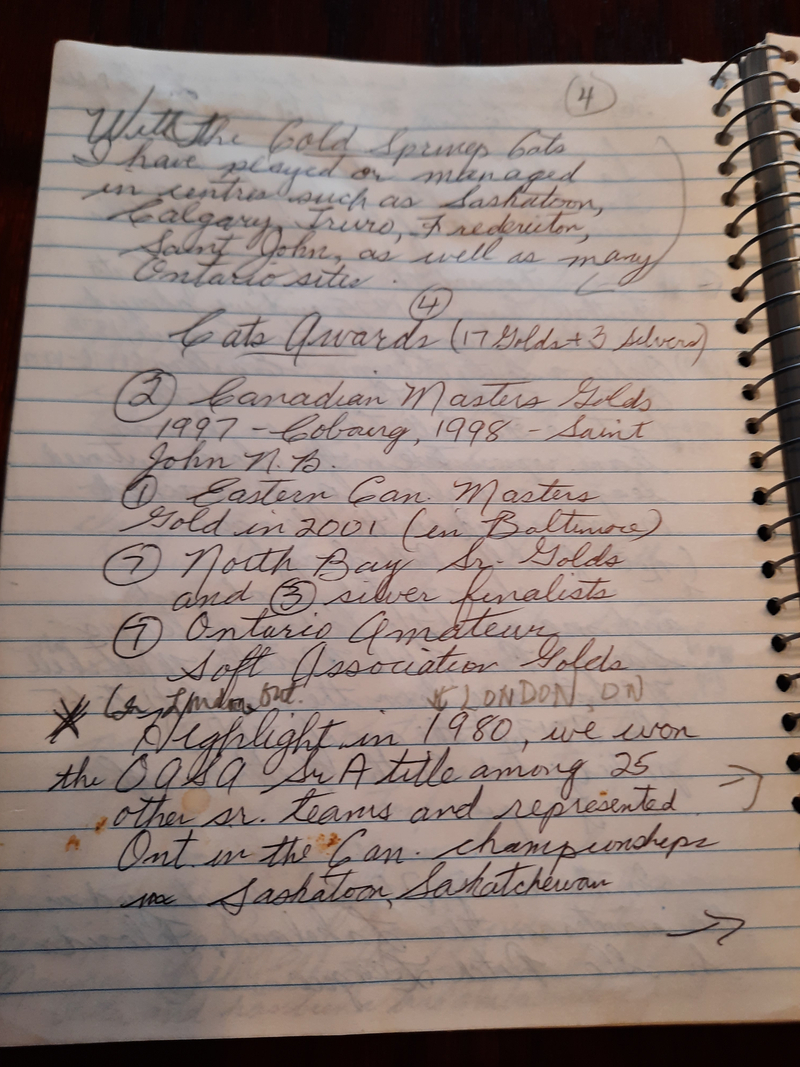 (4)
With the Cold Springs Cats
I have played or managed
in centres such as Saskatoon,
Calgary, Truro, Fredericton,
Saint John, as well as many
Ontario sites.
(4)
Cats Awards (17 Golds + 3 Silvers)
(2) Canadian Masters Golds
1997 - Cobourg, 1998 - Saint
John N.B.
(1) Eastern Can. Masters
Gold in 2001 (in Baltimore)
(7) North Bay Sr. Golds
and (3) silver finalists
(7) Ontario Amateur
Soft Association Golds
(In London, Ont. * LONDON, ON
* Highlight in 1980, we won
the OASA Sr A title among 25
other sr. teams and represented
Ont. in the Can. championships
in Saskatoon, Saskatchewan